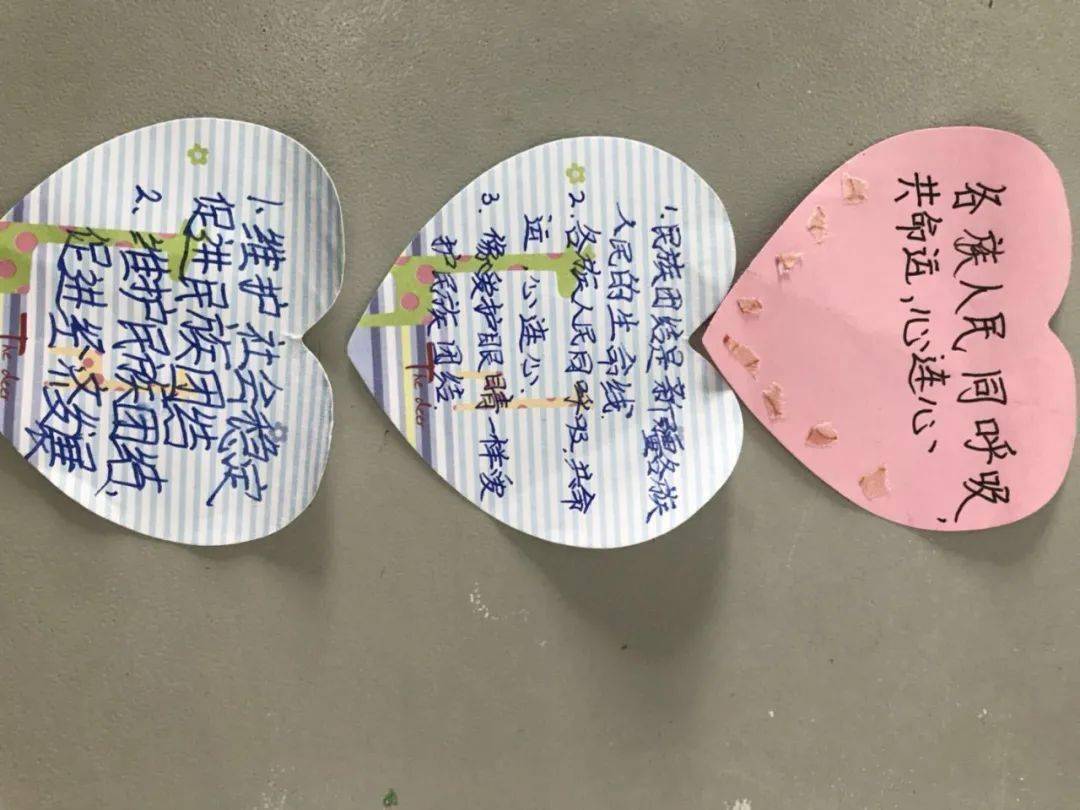 各族人民同呼吸,
共命运,心连心、
1.民族团结是新疆各族
人民的生命线.
2.各族人民同呼吸.共命
运 心连心.
3.像爱护眼睛一样爱
护民族团结.
The deer
1.维护社会稳定
促进民族团结
2、维护民族团结,
促进经济发展
The deer